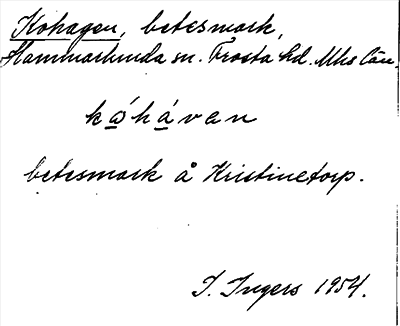 Kohagen, betesmark,
Hammarlunda sn. Frosta hd. Mhs län.
kώhávan
betesmark å Kristinetorp.
I. Ingers 1954.